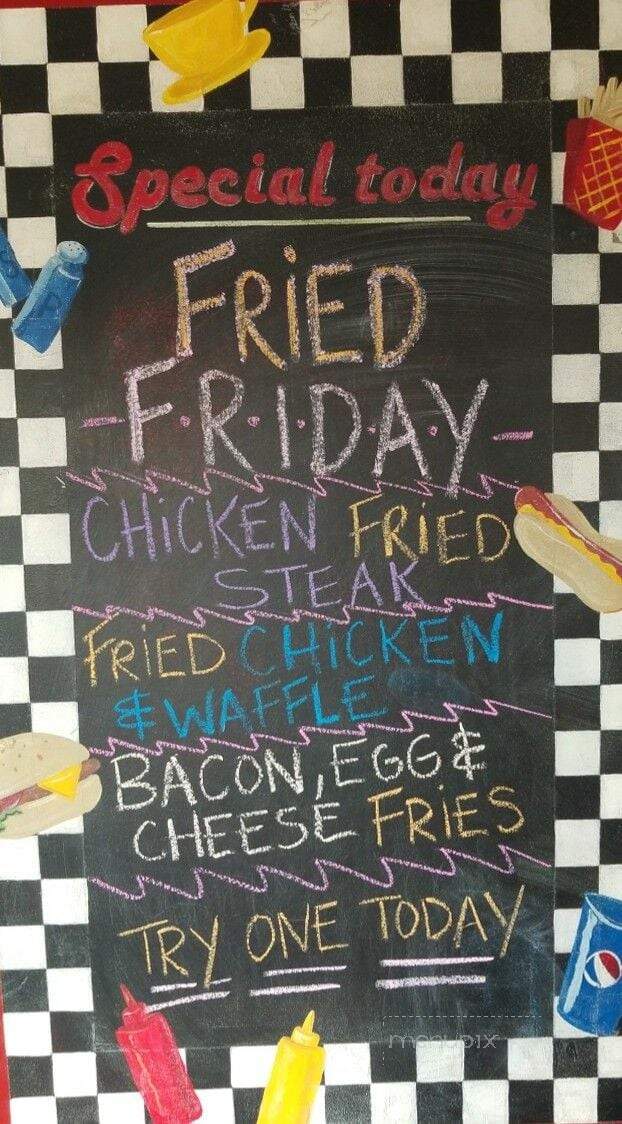 Special today
FRiED
F·R·I·D·A·Y
CHiCKEN FRiED
STEAK
FRiED CHiCKEN
& WAFFLE
BACON, EGG &
CHEESE FRiES
TRY ONE TODAY
menupix